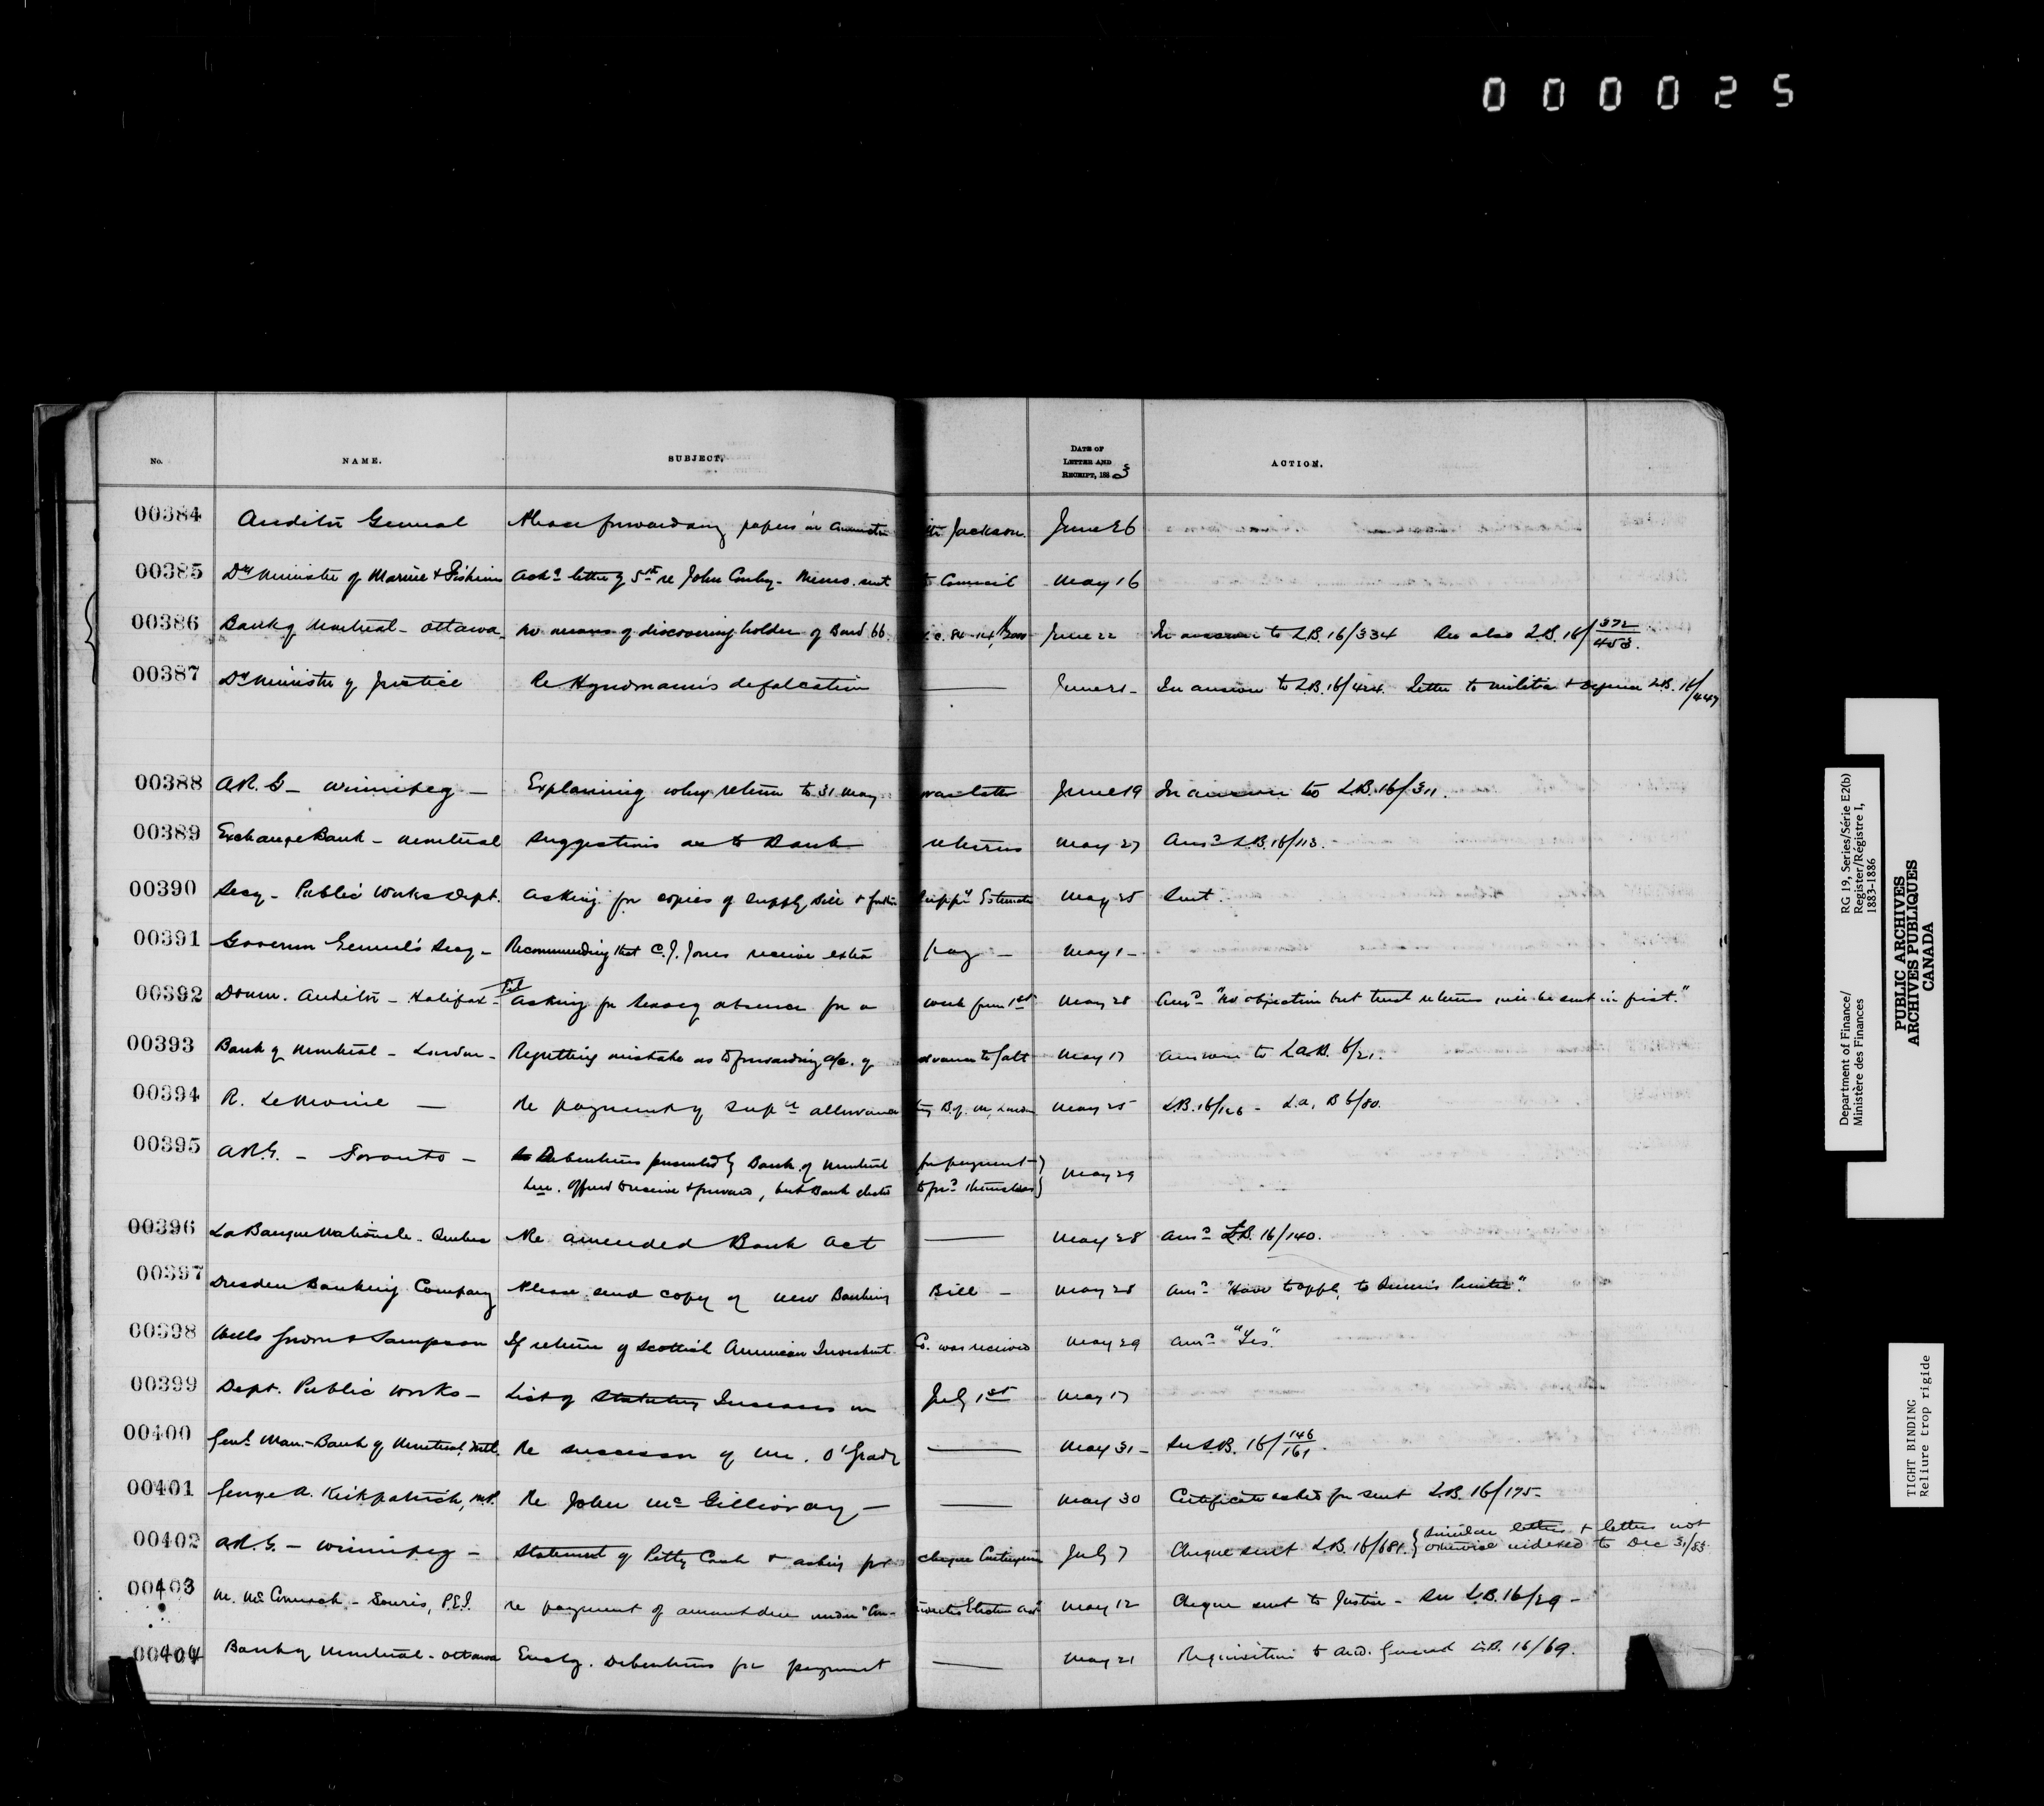 000025
No. NAME. SUBJECT. DATE OF LETTER AND RECEIPT, 1883 ACTION.
00384 Auditor General Please forwarding papers in connection with Jackson. June 26
00385 Dy Minister of Marine & Fisheries Ackg letter of 5th re John Conley - Memo. sent to Council May 16
00386 Bank of Montreal - Ottawa no means of discovering holder of Bond 66. June 22 In answer to L.B. 16/334 See also L.B. 16/372/453.
00387 Dy Minister of Justice Re Hyndman's defalcation — June 21 - In answer to L.B. 16/424. Letter to Militia & Defence L.B. 16/447
00388 A.R.G - Winnipeg - Explaining why return to 31 May was late June 19 In answer to L.B. 16/311.
00389 Exchange Bank - Montreal Suggestions as to Bank returns May 27 Ansd L.B. 16/113.
00390 Secy - Public Works Dept. Asking for copies of Supply Bill & further Suppy Estimates May 25 Sent
00391 Governor General's Secy - Recommending that C.J. Jones receive extra pay - May 1 -
00392 Domn. Auditor - Halifax - Tel asking for leave of absence for a week from 1st May 28 Ansd "No objection but trust returns will be sent in first."
00393 Bank of Montreal - London - Regretting mistake as to forwarding a/c. of advance to Galt May 17 Answer to La.B. 6/21.
00394 R. LeMoine — Re payment of supn allowance by B. of M, London May 25 L.B. 16/126 - La. B 6/80.
00395 A.R.G. - Toronto - Debentures presented by Bank of Montreal for payment
here. Offered to receive & forward, but Bank elected to fwd themselves } May 29
00396 La Banque Nationale - Quebec Re amended Bank Act — May 28 Ansd L.B. 16/140.
00397 Dresden Banking Company Please send copy of new Banking Bill - May 28 Ansd "Have to apply to Queen's Printer."
00398 Wells Gordon & Sampson If return of Scottish American Investment Co. was received May 29 Ansd "Yes".
00399 Dept. Public Works - List of Statutory Increases on July 1st May 17
00400 Genl. Man. - Bank of Montreal, Mtl. Re successor of Mr. O'Grady — May 31 - See L.B. 16/146/161.
00401 George A. Kirkpatrick, M.P. Re John McGillivray - — May 30 Certificate asked for sent L.B. 16/175 -
00402 A.R.G. - Winnipeg - Statement of Petty Cash & asking for cheque Contingencies July 7 Cheque sent L.B. 16/681. { Similar letters & letters not
otherwise indexed to Dec 31/83
00403 M. McCormack - Souris, P.E.I. re payment of amount due under "Controverted Election Act" May 12 Cheque sent to Justice - See L.B. 16/29 -
00404 Bank of Montreal - Ottawa Enclg. Debentures for payment — May 21 Requisition to Aud. General L.B. 16/69.
Department of Finance/
Ministère des Finances
RG 19, Series/Série E2(b)
Register/Régistre I,
1883-1886
PUBLIC ARCHIVES
ARCHIVES PUBLIQUES
CANADA
TIGHT BINDING
Reliure trop rigide